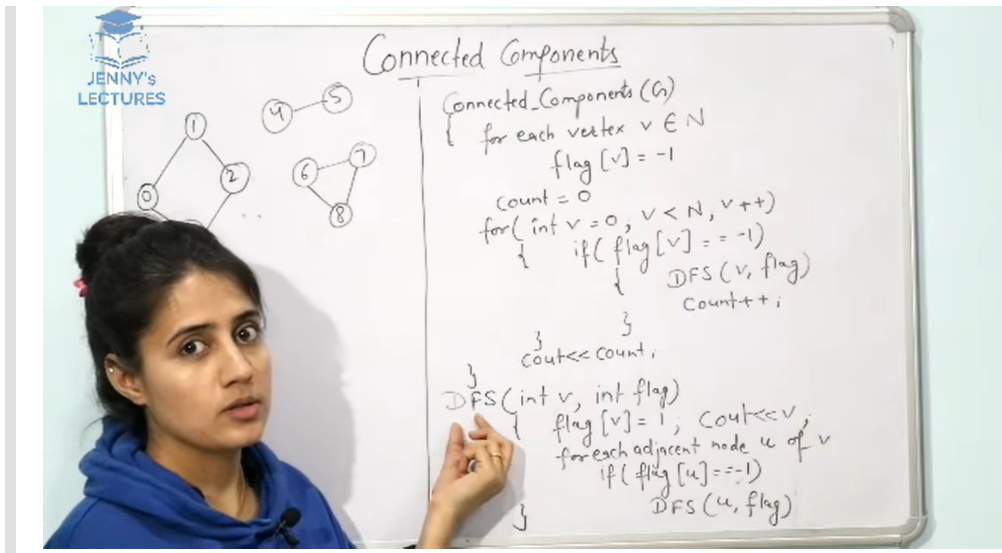 JENNY's
LECTURES
Connected Components
4
5
1
0
2
6
7
8
Connected_Components(G)
{ for each vertex v ∈ N
flag[v] = -1
count = 0
for( int v = 0 ; v < N, v++)
{ if( flag[v] = = -1)
{ DFS(v, flag)
count++;
}
}
cout<< count;
}
DFS(int v, int flag)
{ flag[v] = 1 ; cout<<v;
for each adjacent node u of v
if( flag[u]==-1)
DFS(u, flag)
}